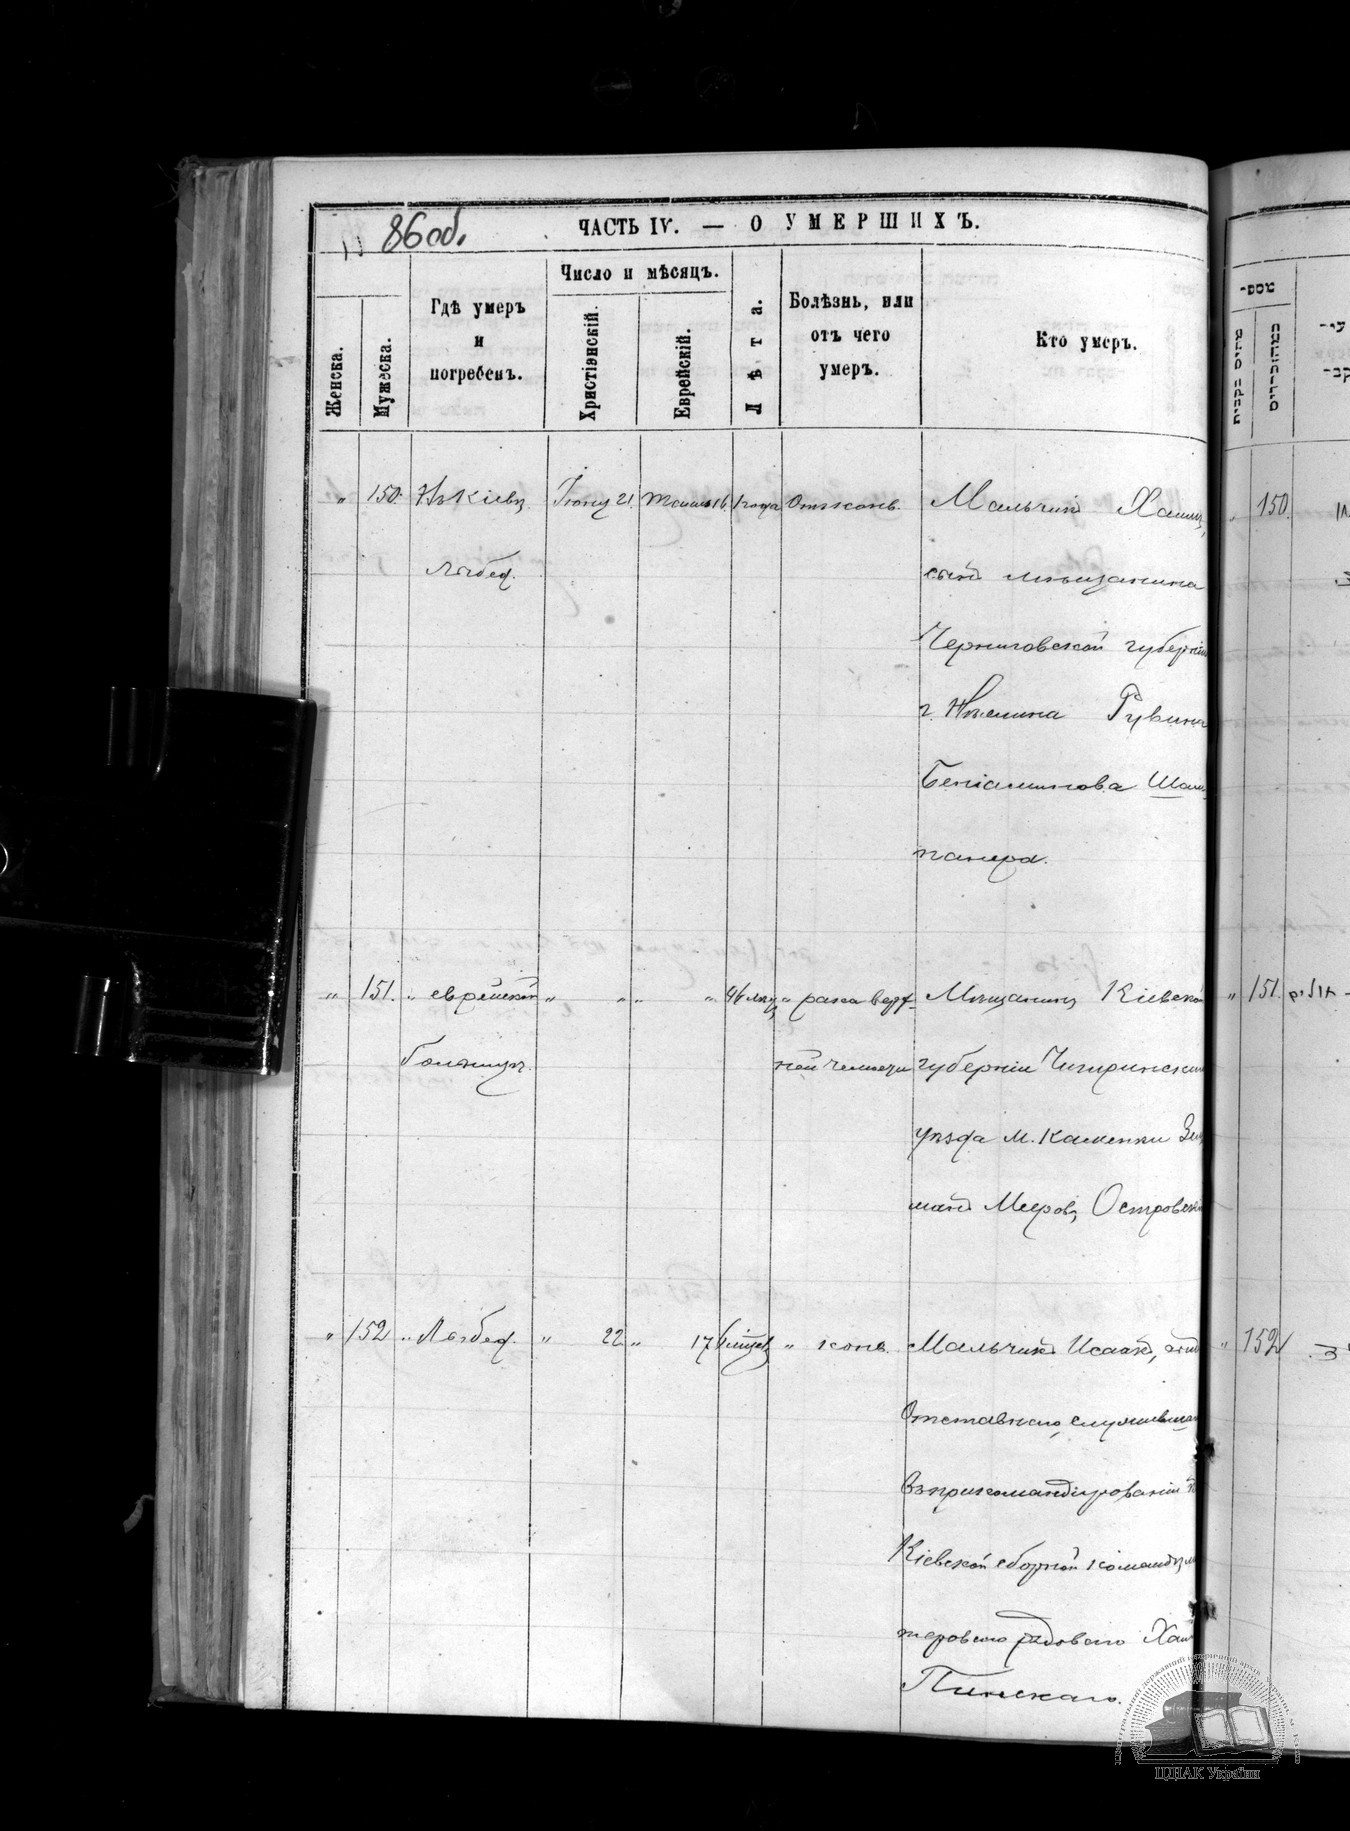 86 об.
ЧАСТЬ IV. — О УМЕРШИХЪ.
Женска.
Мужеска.
Гдѣ умеръ
и
погребенъ.
Число и мѣсяцъ.
Христіянскій.
Еврейскій.
Лѣта.
Болѣзнь, или
отъ чего
умеръ.
Кто умеръ.
" 150. Въ Кіевѣ Іюня 21. 16 1 года Отъ конв. Мальчикъ Хаимъ,
Лыбед. сынъ мѣщанина
Черниговской губерніи
г. Нѣжина Рувина
Беніаминова Шам-
панера.
" 151. " еврейской " " " " 46 лѣтъ " рака верх- Мѣщанинъ Кіевской
больницѣ. ней челюсти губерніи Чигиринскаго
уѣзда м. Каменки Зель
манъ Мееровъ Островскій
" 152 " Лыбед. " 22 " 17 6 мѣсяц. " конв. Мальчикъ Исаакъ, сынъ
Отставнаго, служившаго
въ прикомандированіи къ
Кіевской сборной командѣ
рядового Хаима
Пинскаго.
150.
151.
152
ЦДІАК України